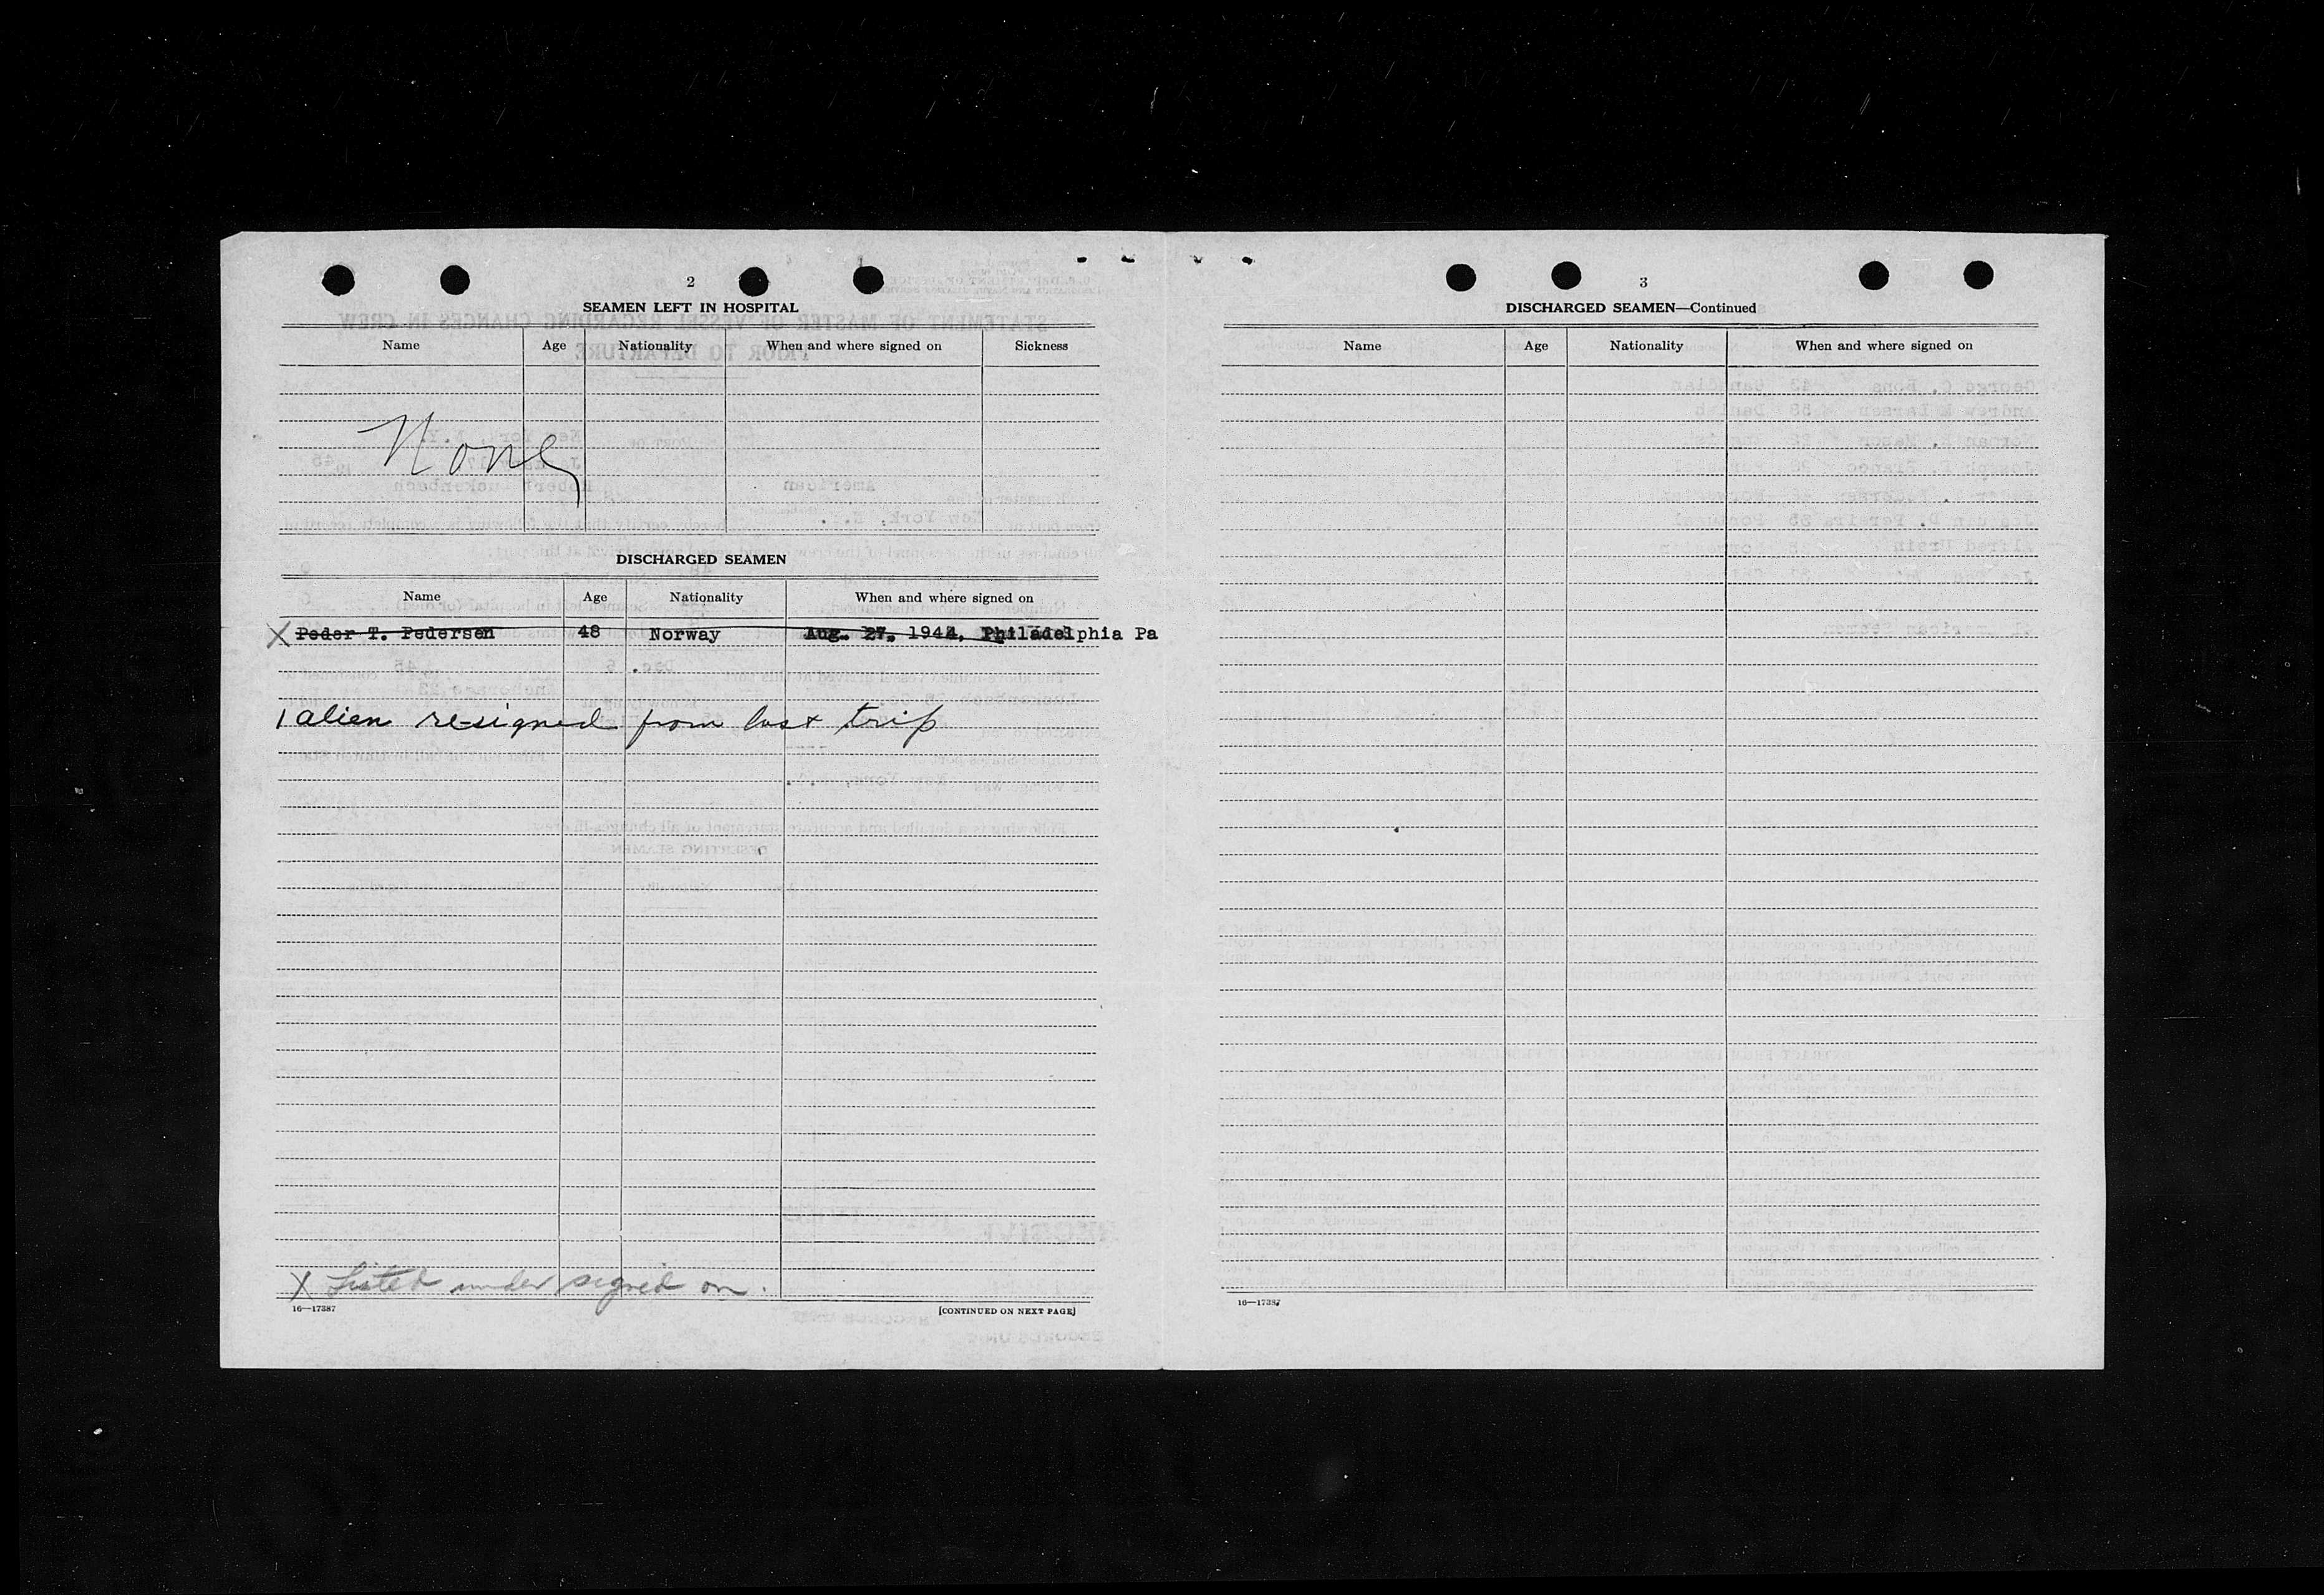 2
SEAMEN LEFT IN HOSPITAL
Name Age Nationality When and where signed on Sickness
None
DISCHARGED SEAMEN
Name Age Nationality When and where signed on
X Peder T. Pedersen 48 Norway Aug. 27, 1944, Philadelphia Pa
1 alien re-signed from last trip
X Listed under signed on.
16—17387
[CONTINUED ON NEXT PAGE]
3
DISCHARGED SEAMEN—Continued
Name Age Nationality When and where signed on
16—17387